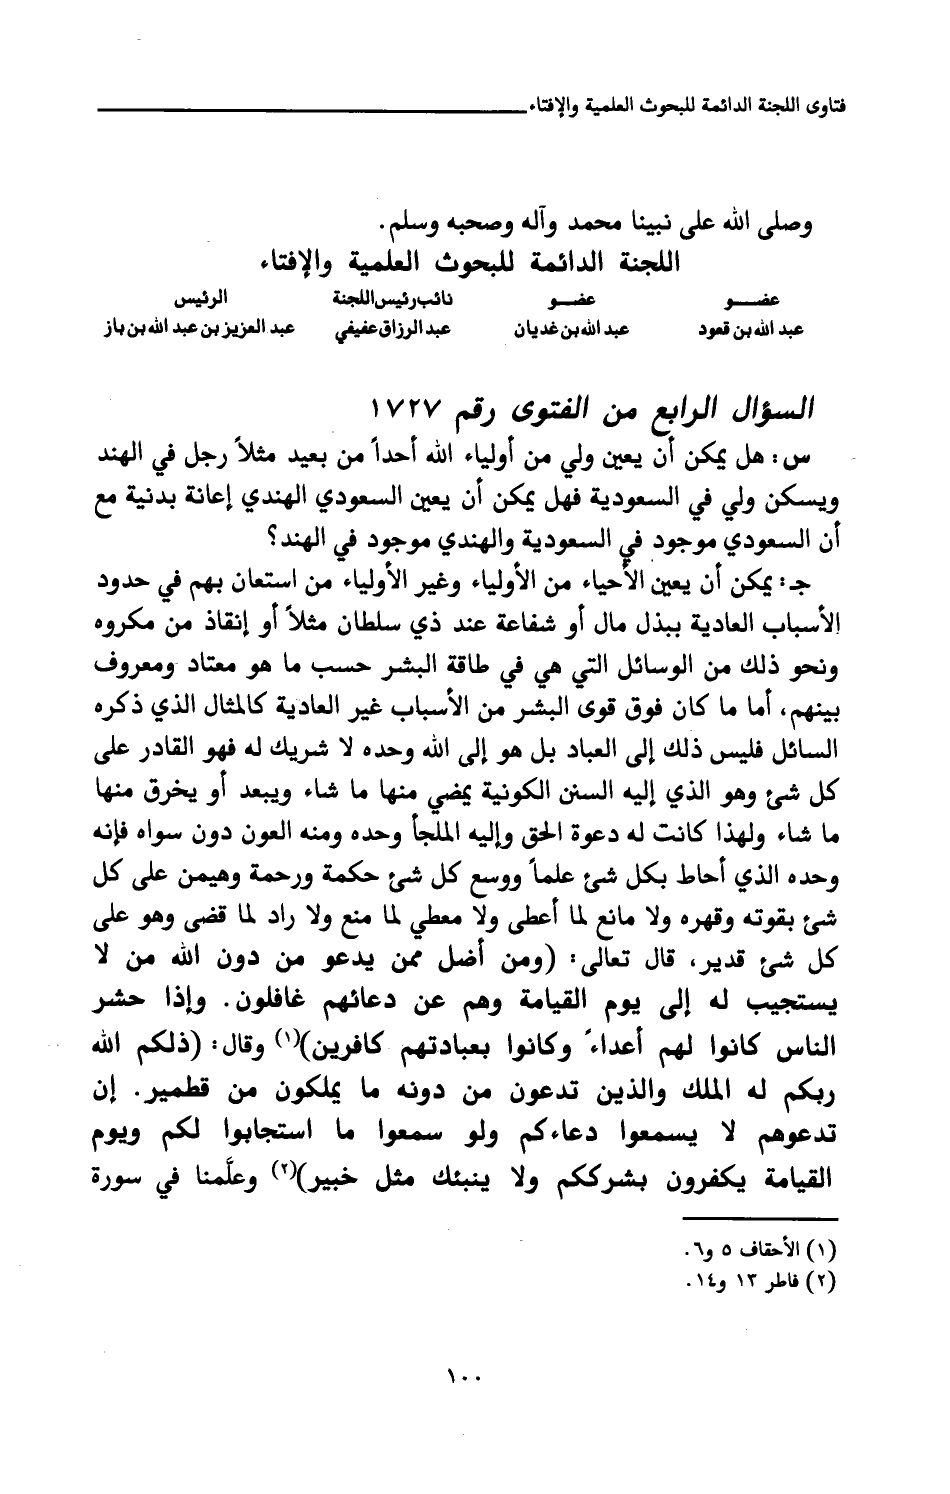 فتاوى اللجنة الدائمة للبحوث العلمية والإفتاء
وصلى الله على نبينا محمد وآله وصحبه وسلم.
اللجنة الدائمة للبحوث العلمية والإفتاء
عضـــو عضـــو نائب رئيس اللجنة الرئيس
عبد الله بن قعود عبد الله بن غديان عبد الرزاق عفيفي عبد العزيز بن عبد الله بن باز
السؤال الرابع من الفتوى رقم ١٧٢٧
س: هل يمكن أن يعين ولي من أولياء الله أحداً من بعيد مثلاً رجل في الهند
ويسكن ولي في السعودية فهل يمكن أن يعين السعودي الهندي إعانة بدنية مع
أن السعودي موجود في السعودية والهندي موجود في الهند؟
جـ: يمكن أن يعين الأحياء من الأولياء وغير الأولياء من استعان بهم في حدود
الأسباب العادية ببذل مال أو شفاعة عند ذي سلطان مثلاً أو إنقاذ من مكروه
ونحو ذلك من الوسائل التي هي في طاقة البشر حسب ما هو معتاد ومعروف
بينهم، أما ما كان فوق قوى البشر من الأسباب غير العادية كالمثال الذي ذكره
السائل فليس ذلك إلى العباد بل هو إلى الله وحده لا شريك له فهو القادر على
كل شئ وهو الذي إليه السنن الكونية يمضي منها ما شاء ويبعد أو يخرق منها
ما شاء ولهذا كانت له دعوة الحق وإليه الملجأ وحده ومنه العون دون سواه فإنه
وحده الذي أحاط بكل شئ علماً ووسع كل شئ حكمة ورحمة وهيمن على كل
شئ بقوته وقهره ولا مانع لما أعطى ولا معطي لما منع ولا راد لما قضى وهو على
كل شئ قدير، قال تعالى: (ومن أضل ممن يدعو من دون الله من لا
يستجيب له إلى يوم القيامة وهم عن دعائهم غافلون. وإذا حشر
الناس كانوا لهم أعداءً وكانوا بعبادتهم كافرين)(١) وقال: (ذلكم الله
ربكم له الملك والذين تدعون من دونه ما يملكون من قطمير. إن
تدعوهم لا يسمعوا دعاءكم ولو سمعوا ما استجابوا لكم ويوم
القيامة يكفرون بشرككم ولا ينبئك مثل خبير)(٢) وعلَّمنا في سورة
(١) الأحقاف ٥ و٦.
(٢) فاطر ١٣ و١٤.
١٠٠